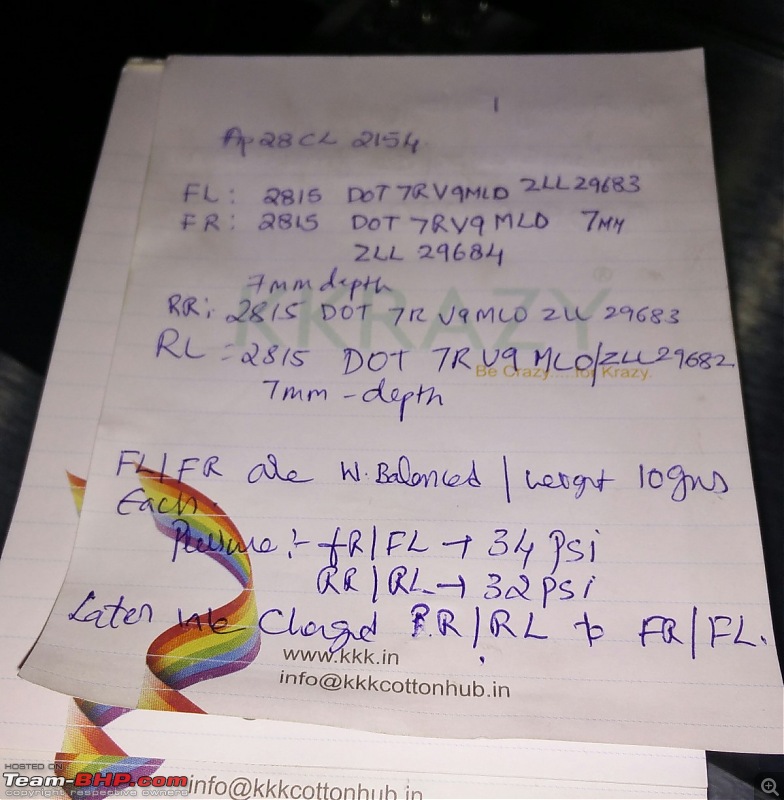 1
Ap 28 CL 2154
FL: 2815 DOT 7RV9MLD ZLL 29683
FR: 2815 DOT 7RV9 MLD 7MM
ZLL 29684
7mm depth
KKRAZY ®
RR: 2815 DOT 7R V9MLO ZLL 29683
RL = 2815 DOT 7R V9 MLO/ZLL 29682
Be Crazy.... for Krazy.
7mm - depth
FL/FR are W. Balanced / weight 10gms
Each.
Pressure :- FR/FL → 34 psi
RR/RL → 32 psi
Later we Changed RR/RL to FR/FL.
www.kkk.in
info@kkkcottonhub.in
info@kkkcottonhub.in
HOSTED ON
Team-BHP.com
copyright respective owners